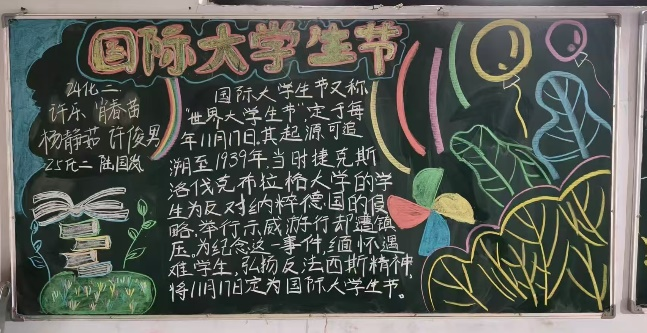 国际大学生节
24化二
许乐 肖春苗
杨静茹 许俊男
25元二 陆国岚
国际大学生节又称
"世界大学生节",定于每
年11月17日,其起源可追
溯至1939年,当时捷克斯
洛伐克布拉格大学的学
生为反对纳粹德国的侵
略,举行示威游行却遭镇
压。为纪念这一事件,缅怀遇
难学生,弘扬反法西斯精神,
将11月17日定为国际大学生节。